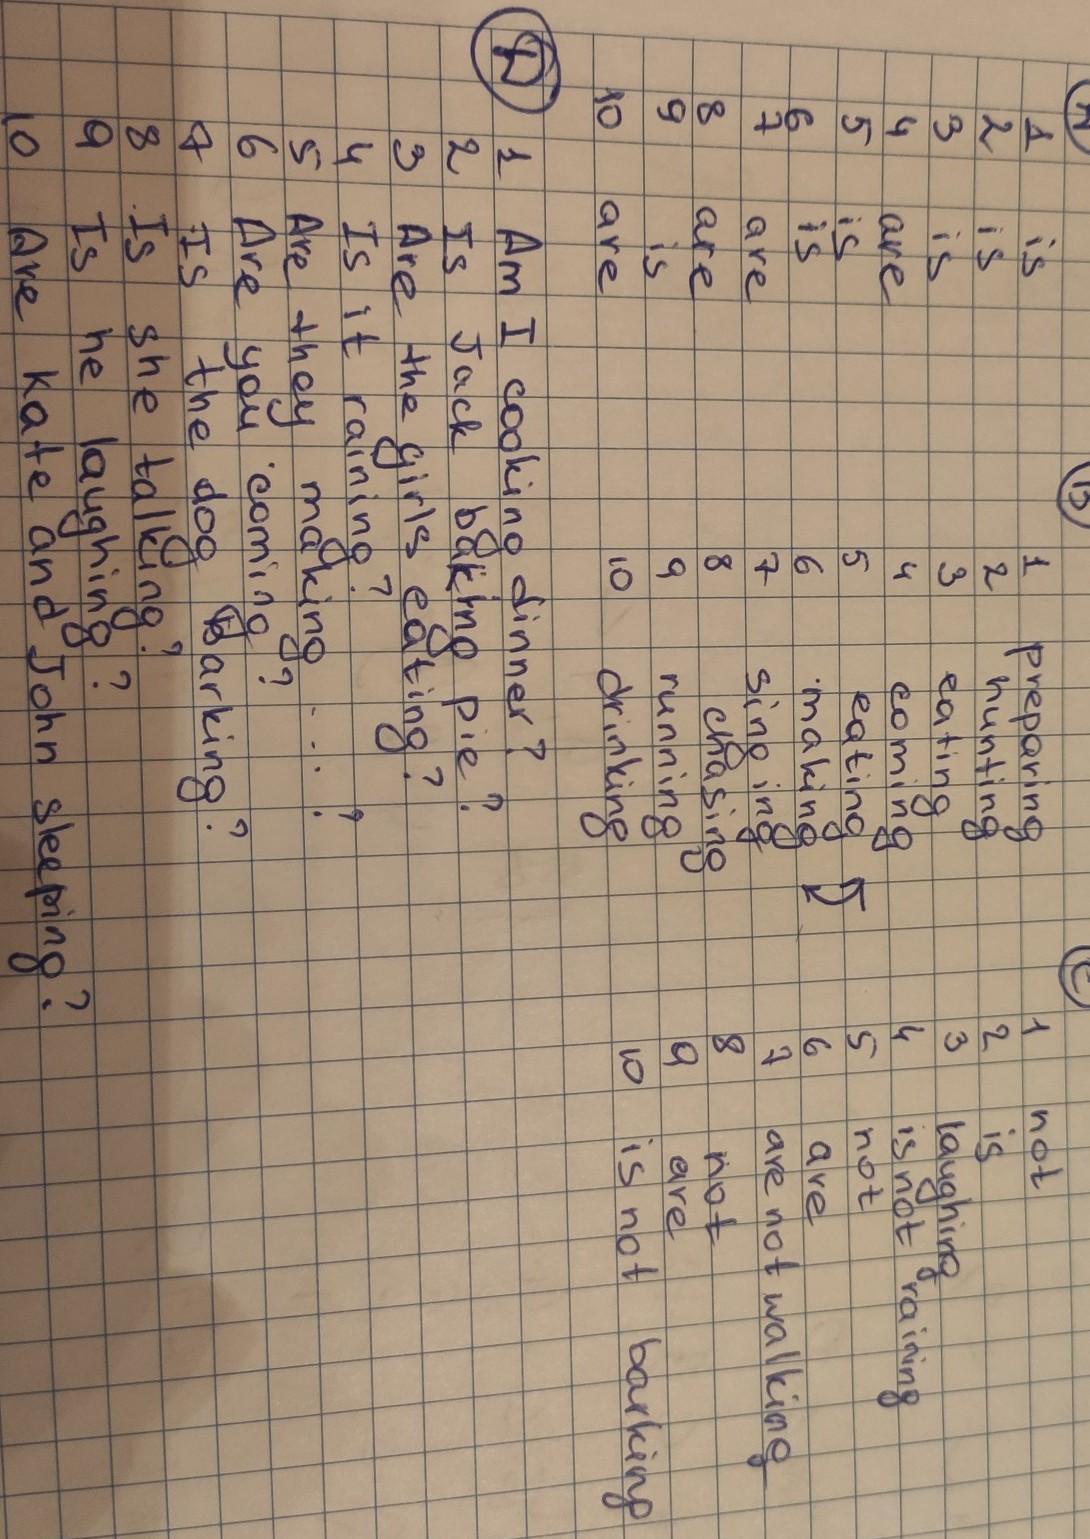 A
1 is
2 is
3 is
4 are
5 is
6 is
7 are
8 are
9 is
10 are
B
1 preparing
2 hunting
3 eating
4 coming
5 eating
6 making
7 singing
8 chasing
9 running
10 drinking
C
1 not
2 is
3 laughing
4 is not raining
5 not
6 are
7 are not walking
8 not
9 are
10 is not barking
D
1 Am I cooking dinner?
2 Is Jack baking pie?
3 Are the girls eating?
4 Is it raining?
5 Are they making ....?
6 Are you coming?
7 Is the dog barking?
8 Is she talking?
9 Is he laughing?
10 Are Kate and John sleeping?